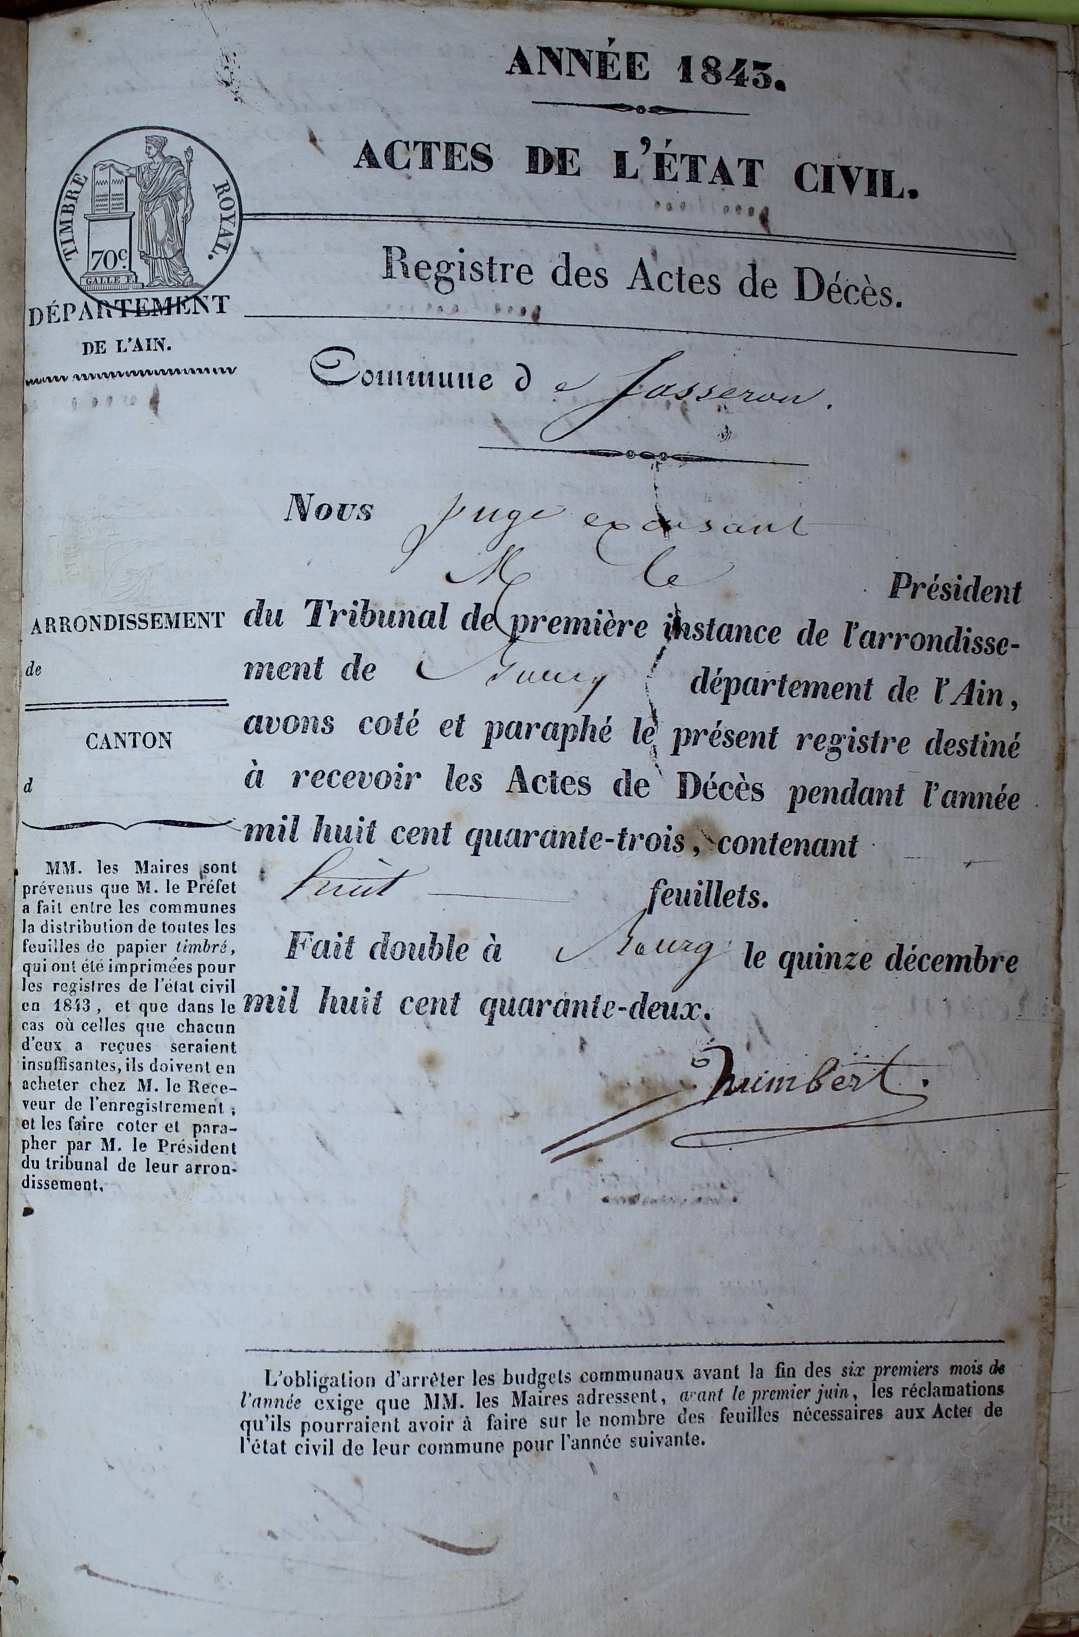 ANNÉE 1843.
ACTES DE L'ÉTAT CIVIL.
TIMBRE ROYAL.
70c
GALLE F.
Registre des Actes de Décès.
DÉPARTEMENT
DE L'AIN.
Commune de Jasseron.
Nous juge excusant
M le Président
du Tribunal de première instance de l'arrondisse-
ment de Bourg département de l'Ain,
avons coté et paraphé le présent registre destiné
à recevoir les Actes de Décès pendant l'année
mil huit cent quarante-trois, contenant
huit feuillets.
Fait double à Bourg le quinze décembre
mil huit cent quarante-deux.
humbert.
ARRONDISSEMENT
de
CANTON
d
MM. les Maires sont
prévenus que M. le Préfet
a fait entre les communes
la distribution de toutes les
feuilles de papier timbré,
qui ont été imprimées pour
les registres de l'état civil
en 1843, et que dans le
cas où celles que chacun
d'eux a reçues seraient
insuffisantes, ils doivent en
acheter chez M. le Rece-
veur de l'enregistrement,
et les faire coter et para-
pher par M. le Président
du tribunal de leur arron-
dissement.
L'obligation d'arrêter les budgets communaux avant la fin des six premiers mois de
l'année exige que MM. les Maires adressent, avant le premier juin, les réclamations
qu'ils pourraient avoir à faire sur le nombre des feuilles nécessaires aux Actes de
l'état civil de leur commune pour l'année suivante.